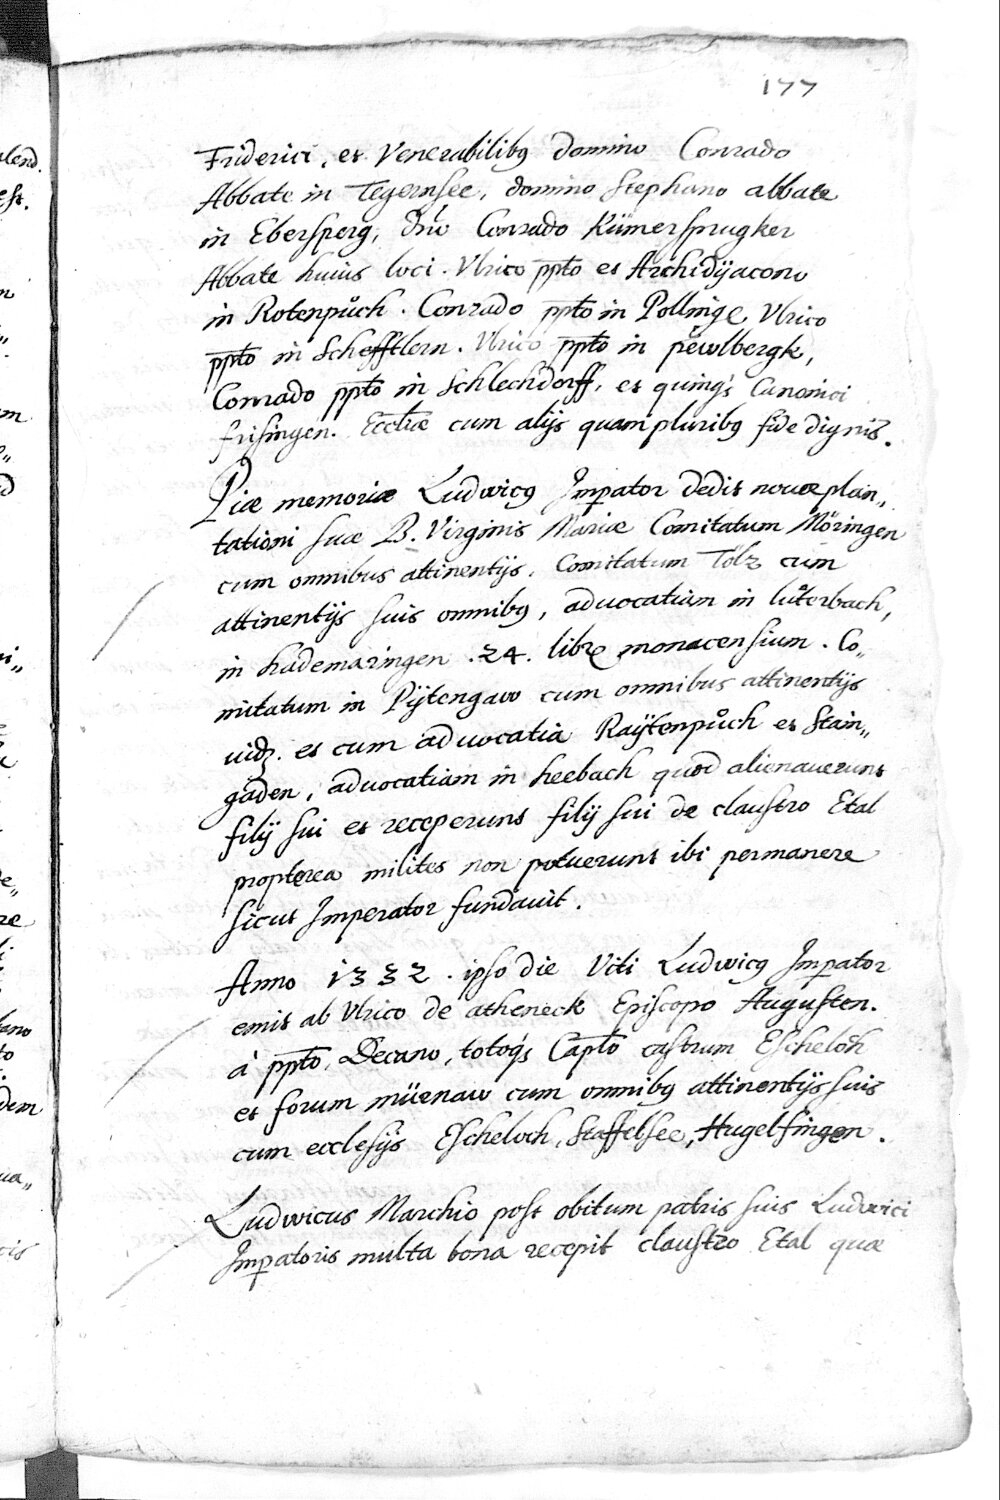 177
Friderici, et Venerabilibꝫ domino Conrado
Abbate in Tegernsee, domino Stephano abbate
in Ebersperg, dn̄o Conrado Kümersprugker
Abbate huius loci. Vlrico pp̄to et Archidÿacono
in Rotenpůch. Conrado pp̄to in Pollinge Vlrico
pp̄to in Schefftlern. Vlrico pp̄to in pewlbergk,
Conrado pp̄to in Schlechdorff, et quinqs Canonici
frisingen. Eccl̄iæ cum alijs quampluribꝫ fide dignis.
Piæ memoriæ Ludwicꝫ Imp̱ator dedit nouæ plan„
tationi suæ B. Virginis Mariæ Comitatum Möringen
cum omnibus attinentijs, Comitatum Tölz cum
attinentijs suis omnibꝫ, aduocatiam in lůterbach,
in hademaringen .24. libre monacensium. Co„
mitatum in Pÿtengaw cum omnibus attinentijs
uidꝫ. et cum aduocatia Raÿtenpůch et Stain„
gaden, aduocatiam in heebach quod alienauerunt
filij sui et receperunt filij sui de claustro Etal
propterea milites non potuerunt ibi permanere
sicut Imperator fundauit.
Anno 1332. ipso die Viti Ludwicꝫ Imp̱ator
emit ab Vlrico de atheneck Episcopo Augusten.
à pp̄to, Decano, totoqs Capl̄o castrum Escheloch
et forum müenaw cum omnibꝫ attinentijs suis
cum ecclesijs Escheloch, Staffelsee, Hugelfingen.
Ludwicus Marchio post obitum patris suis Ludwici
Imp̱atoris multa bona recepit claustro Etal quæ